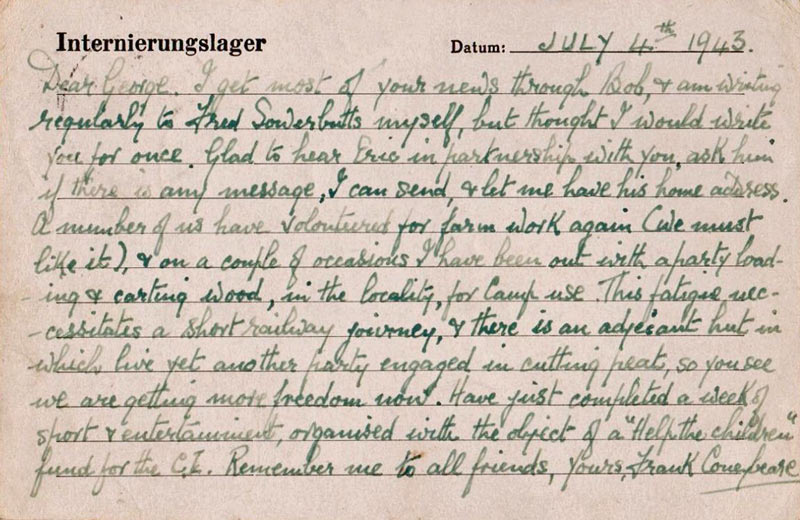 Internierungslager
Datum: JULY 4th 1943.
Dear George. I get most of your news through Bob, & am writing
regularly to Fred Sowerbutts myself, but thought I would write
you for once. Glad to hear Eric in partnership with you, ask him
if there is any message, I can send, & let me have his home address.
A number of us have volontured for farm work again (we must
like it), & on a couple of occasions I have been out with a party load-
-ing & carting wood, in the locality, for Camp use. This fatigue nec-
-cessitates a short railway journey, & there is an adjecant hut in
which live yet another party engaged in cutting peat, so you see
we are getting more freedom now. Have just completed a week of
sport & entertainment, organised with the object of a "Help the children"
fund for the C.I. Remember me to all friends, Yours, Frank Conebeare